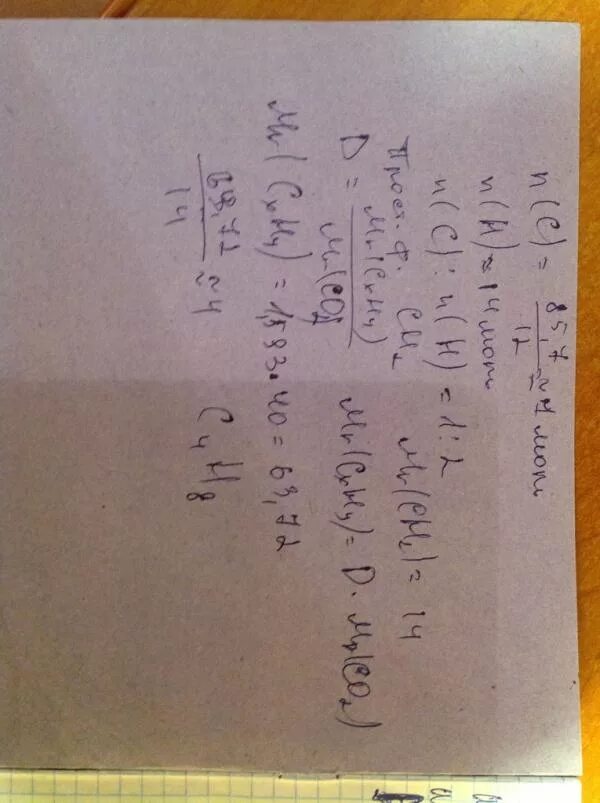 n(C) = 85,7/12 ≈ 7 моль
n(H) ≈ 14 моль
n(C) : n(H) = 1 : 2
Прост. ф. CH₂ Mr(CH₂) = 14
D = Mr(CxHy)/Mr(CO₂) Mr(CxHy) = D · Mr(CO₂)
Mr(CxHy) = 1,593 · 40 = 63,72
63,72/14 ≈ 4 C₄H₈